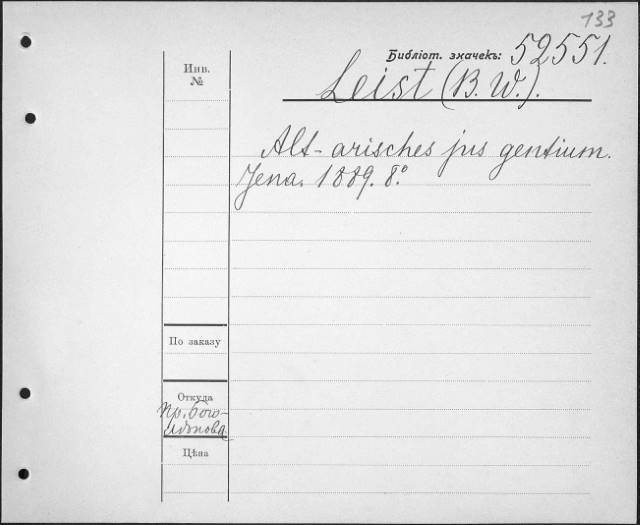 133
Библіот. значекъ: 52551.
Инв.
№
Leist (B. W.).
Alt-arisches jus gentium.
Jena. 1889. 8.°
По заказу
Откуда
Пр.
Цѣна